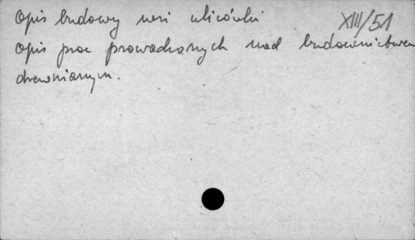 Opis budowy wsi ulicówki
XIII/51
Opis prac prowadzonych nad budownictwem
drewnianym.